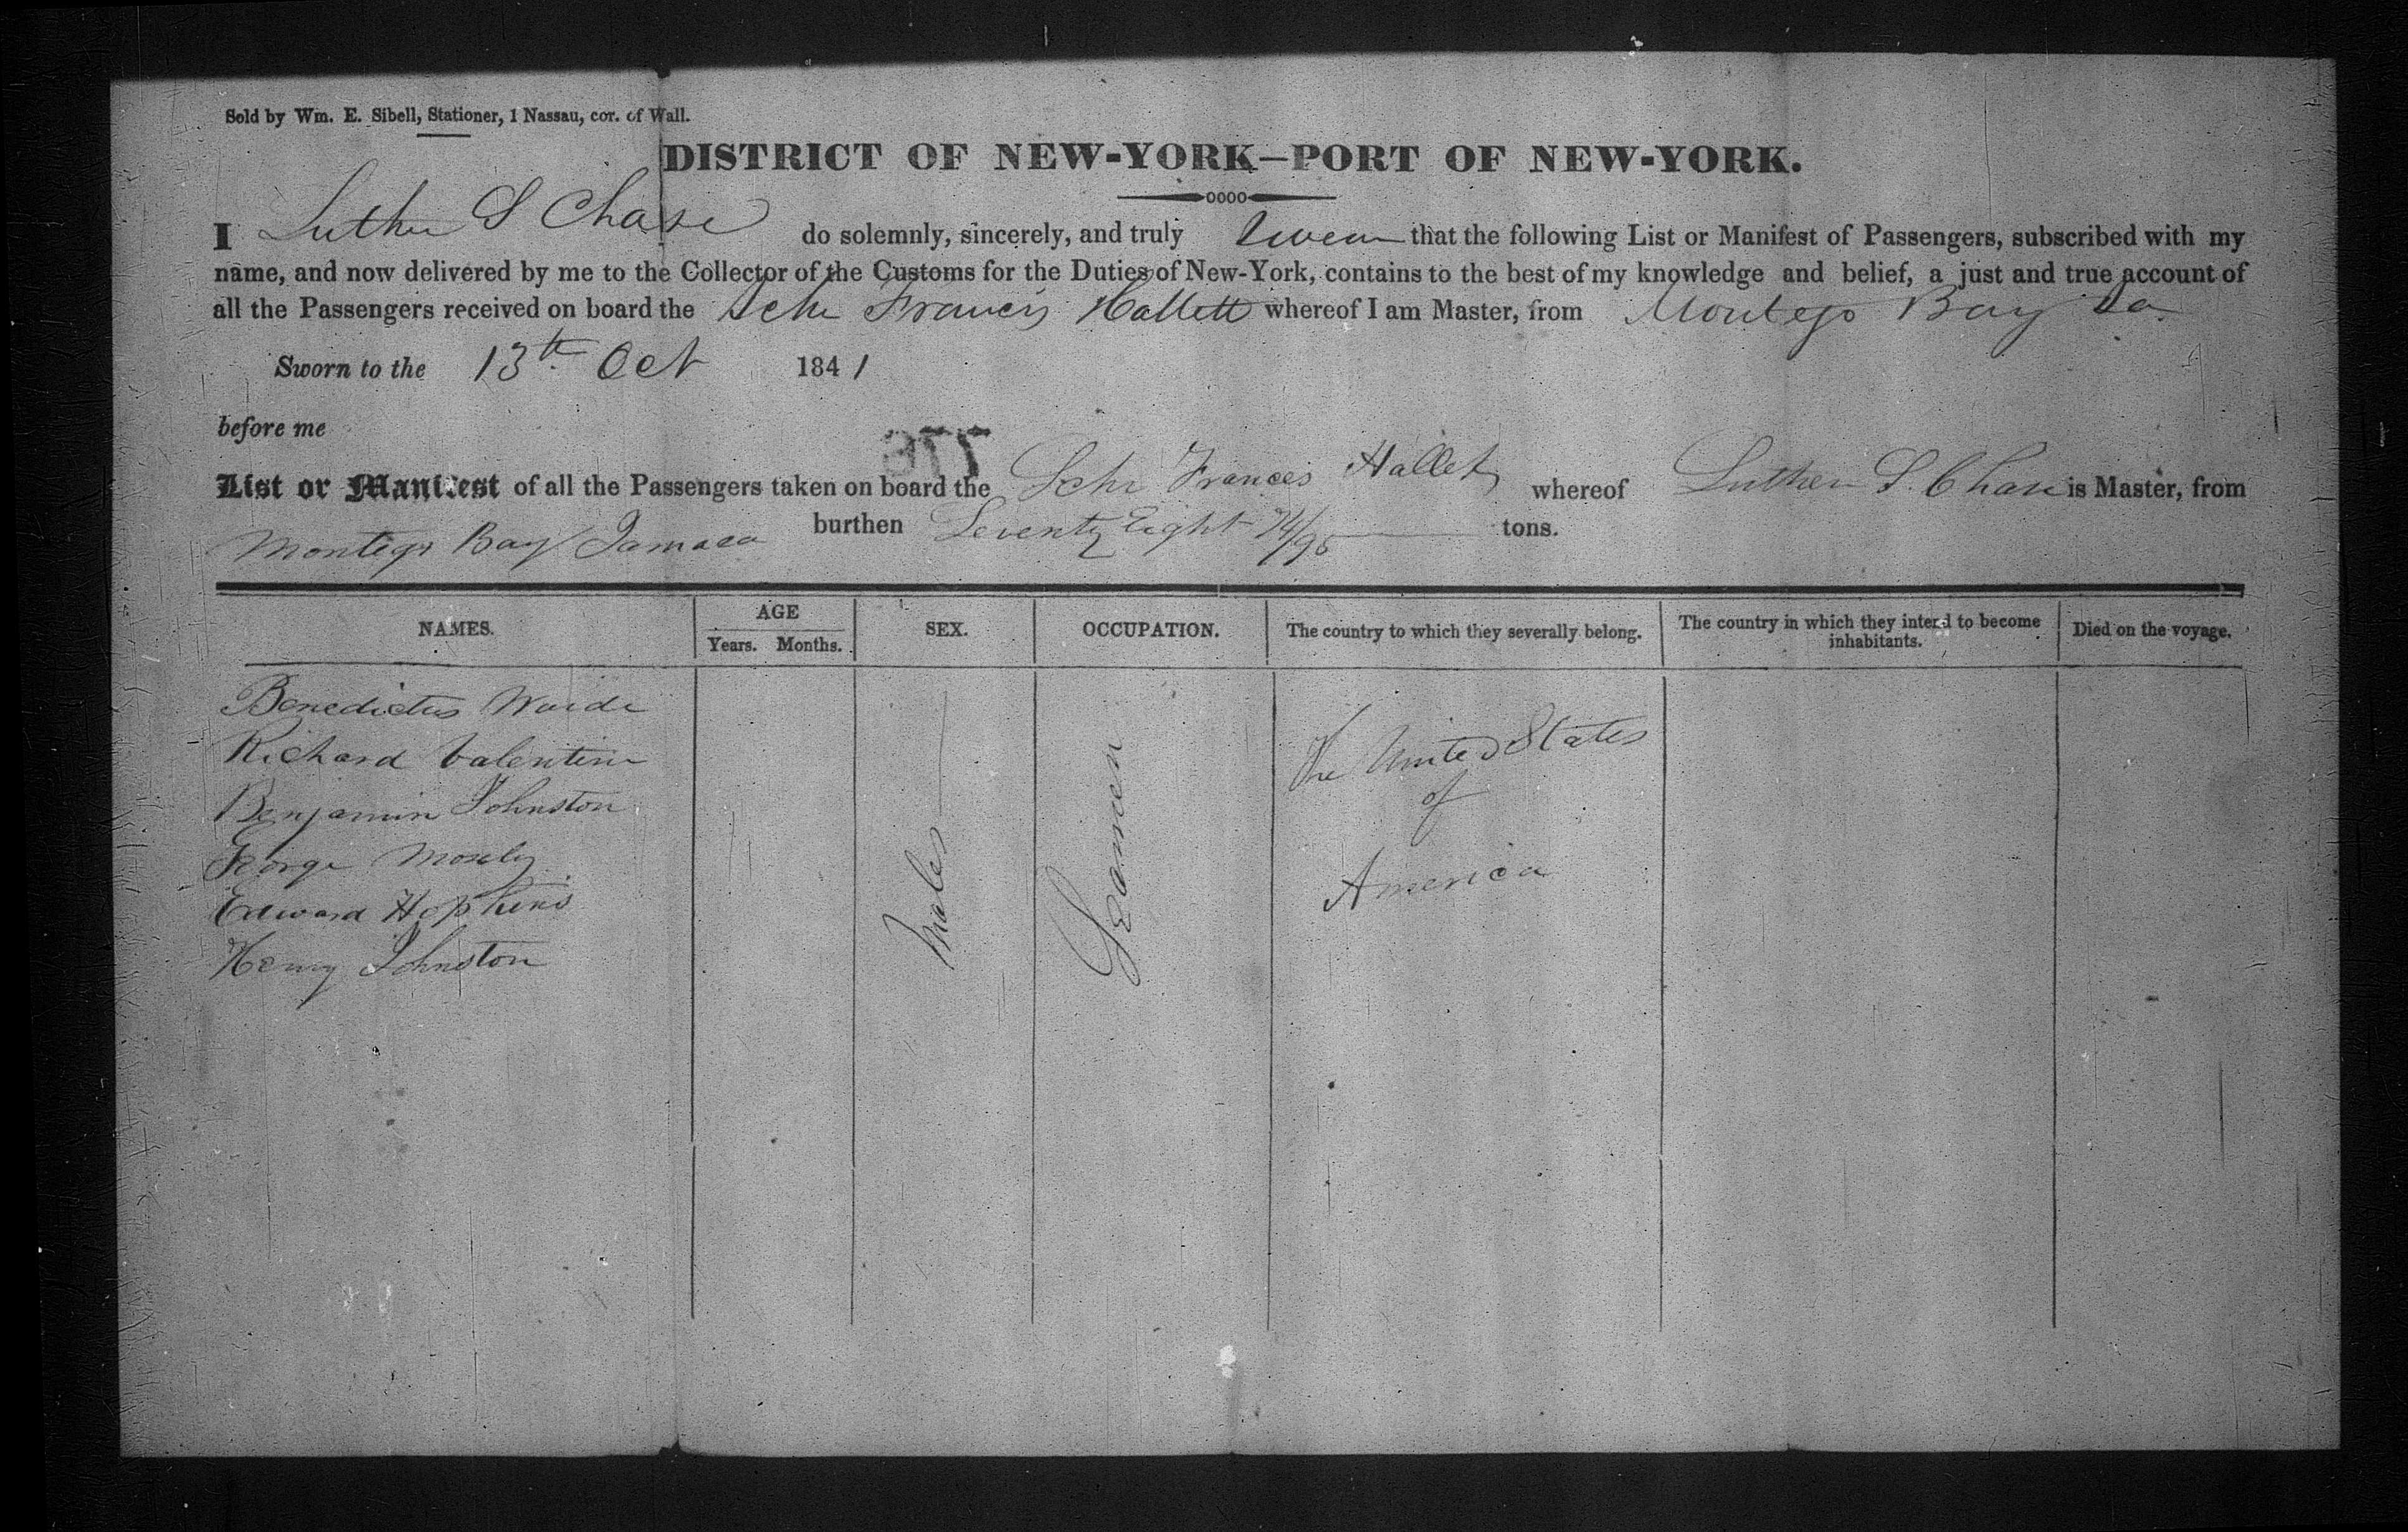 Sold by Wm. E. Sibell, Stationer, 1 Nassau, cor. of Wall.
DISTRICT OF NEW-YORK—PORT OF NEW-YORK.
I Luther S Chase do solemnly, sincerely, and truly Swear that the following List or Manifest of Passengers, subscribed with my
name, and now delivered by me to the Collector of the Customs for the Duties of New-York, contains to the best of my knowledge and belief, a just and true account of
all the Passengers received on board the Schr Francis Hallett whereof I am Master, from Montego Bay Ja
Sworn to the 13th Oct 1841
before me
377
List or Manifest of all the Passengers taken on board the Schr Frances Hallet whereof Luther S. Chase is Master, from
Montego Bay Jamaca burthen Seventy Eight 74/95 tons.
NAMES. AGE SEX. OCCUPATION. The country to which they severally belong. The country in which they intend to become inhabitants. Died on the voyage.
Years. Months.
Benedictus Waide
Richard Valentine
Benjamin Johnston
George Mosely
Edward Hopkins
Henry Johnston
Males
Seamen
The United States
of
America